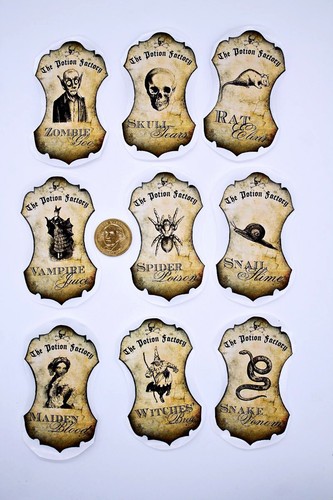 The Potion Factory
ZOMBIE
Goo
The Potion Factory
SKULL
Tears
The Potion Factory
RAT
Elixir
The Potion Factory
VAMPIRE
Juice
The Potion Factory
SPIDER
Poison
The Potion Factory
SNAIL
Slime
The Potion Factory
MAIDEN
Blood
The Potion Factory
WITCHES'
Brew
The Potion Factory
SNAKE
Venom